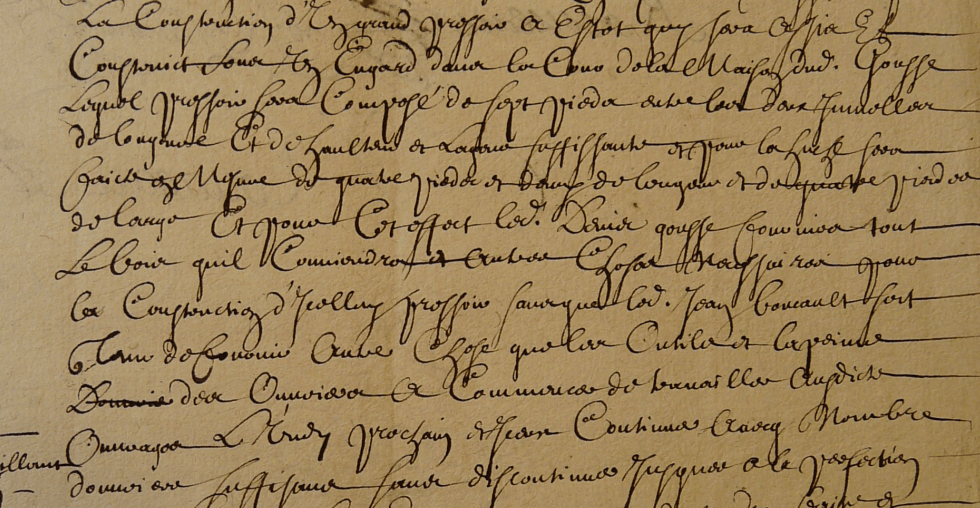 La Construction d'Un grand pressoir a Estot quy sera assis Et
Construict soubz Un Engard dans la Cour de la Maison dud. Gousse
Lequel pressoir sera Composé de sept pieds entre les deux Jumelles
de longueur Et de haulteur et Largeur suffissante et pour la husche sera
faicte de quatre pieds et demy de longueur et de quatre pieds
de large Et pour Cet effect led. Denis gousse fournira tout
Le bois quil Conviendra et Autres Choses Necessaires pour
la Construction d'Icelluy pressoir sans que led. Jean boucault soit
tenu de fournir Autre Chose que les Outils et la peinne
des Ouvriers Et Commencer de travailler Ausdicts
Ouvrages Lundy prochain Et Continuer Avecq Nombre
douvriers suffisans sans discontinuer Jusques a la perfection